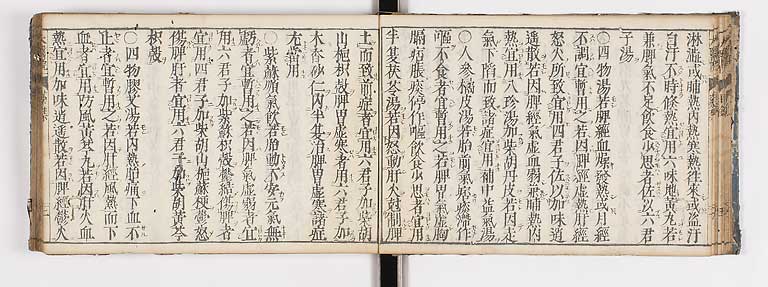 淋澁或晡熱內熱寒熱往來或盜汗
自汗不時倏熱宜用六味地黃丸若
兼脾氣不足飲食少思者佐以六君
子湯
○四物湯若脾經血燥發熱或月經
不調宜暫用之若因脾經虛熱肝經
怒火所致宜用四君子佐以加味逍
遙散若因脾經氣虛血弱兼晡熱內
熱宜用八珍湯加柴胡丹皮若因元
氣下陷而致諸症宜用補中益氣湯
○人參橘皮湯若胎前氣痰
嘔不食者宜暫用之若脾胃氣虛胸
膈痞脹痰停作嘔飲食少思者宜用
半夏茯苓湯若因怒動肝火剋制脾
土而致前症者宜用六君子加柴胡
山梔枳殼脾胃虛寒者用六君子加
木香砂仁內半夏治脾胃虛寒諸症
尤當用
○紫蘇飲若胎動不安元氣無
虧者宜暫用之若因脾氣虛弱者宜
用六君子加紫蘇枳殼鬱結傷脾者
宜用四君子加柴胡山梔蘇梗鬱怒
傷脾肝者宜用六君子加柴胡黃芩
枳殼
○四物膠艾湯若內熱胎痛下血不
止者宜暫用之若因肝經風熱而下
血者宜用防風黃芩丸若因肝火血
熱宜用加味逍遙散若因脾經鬱火